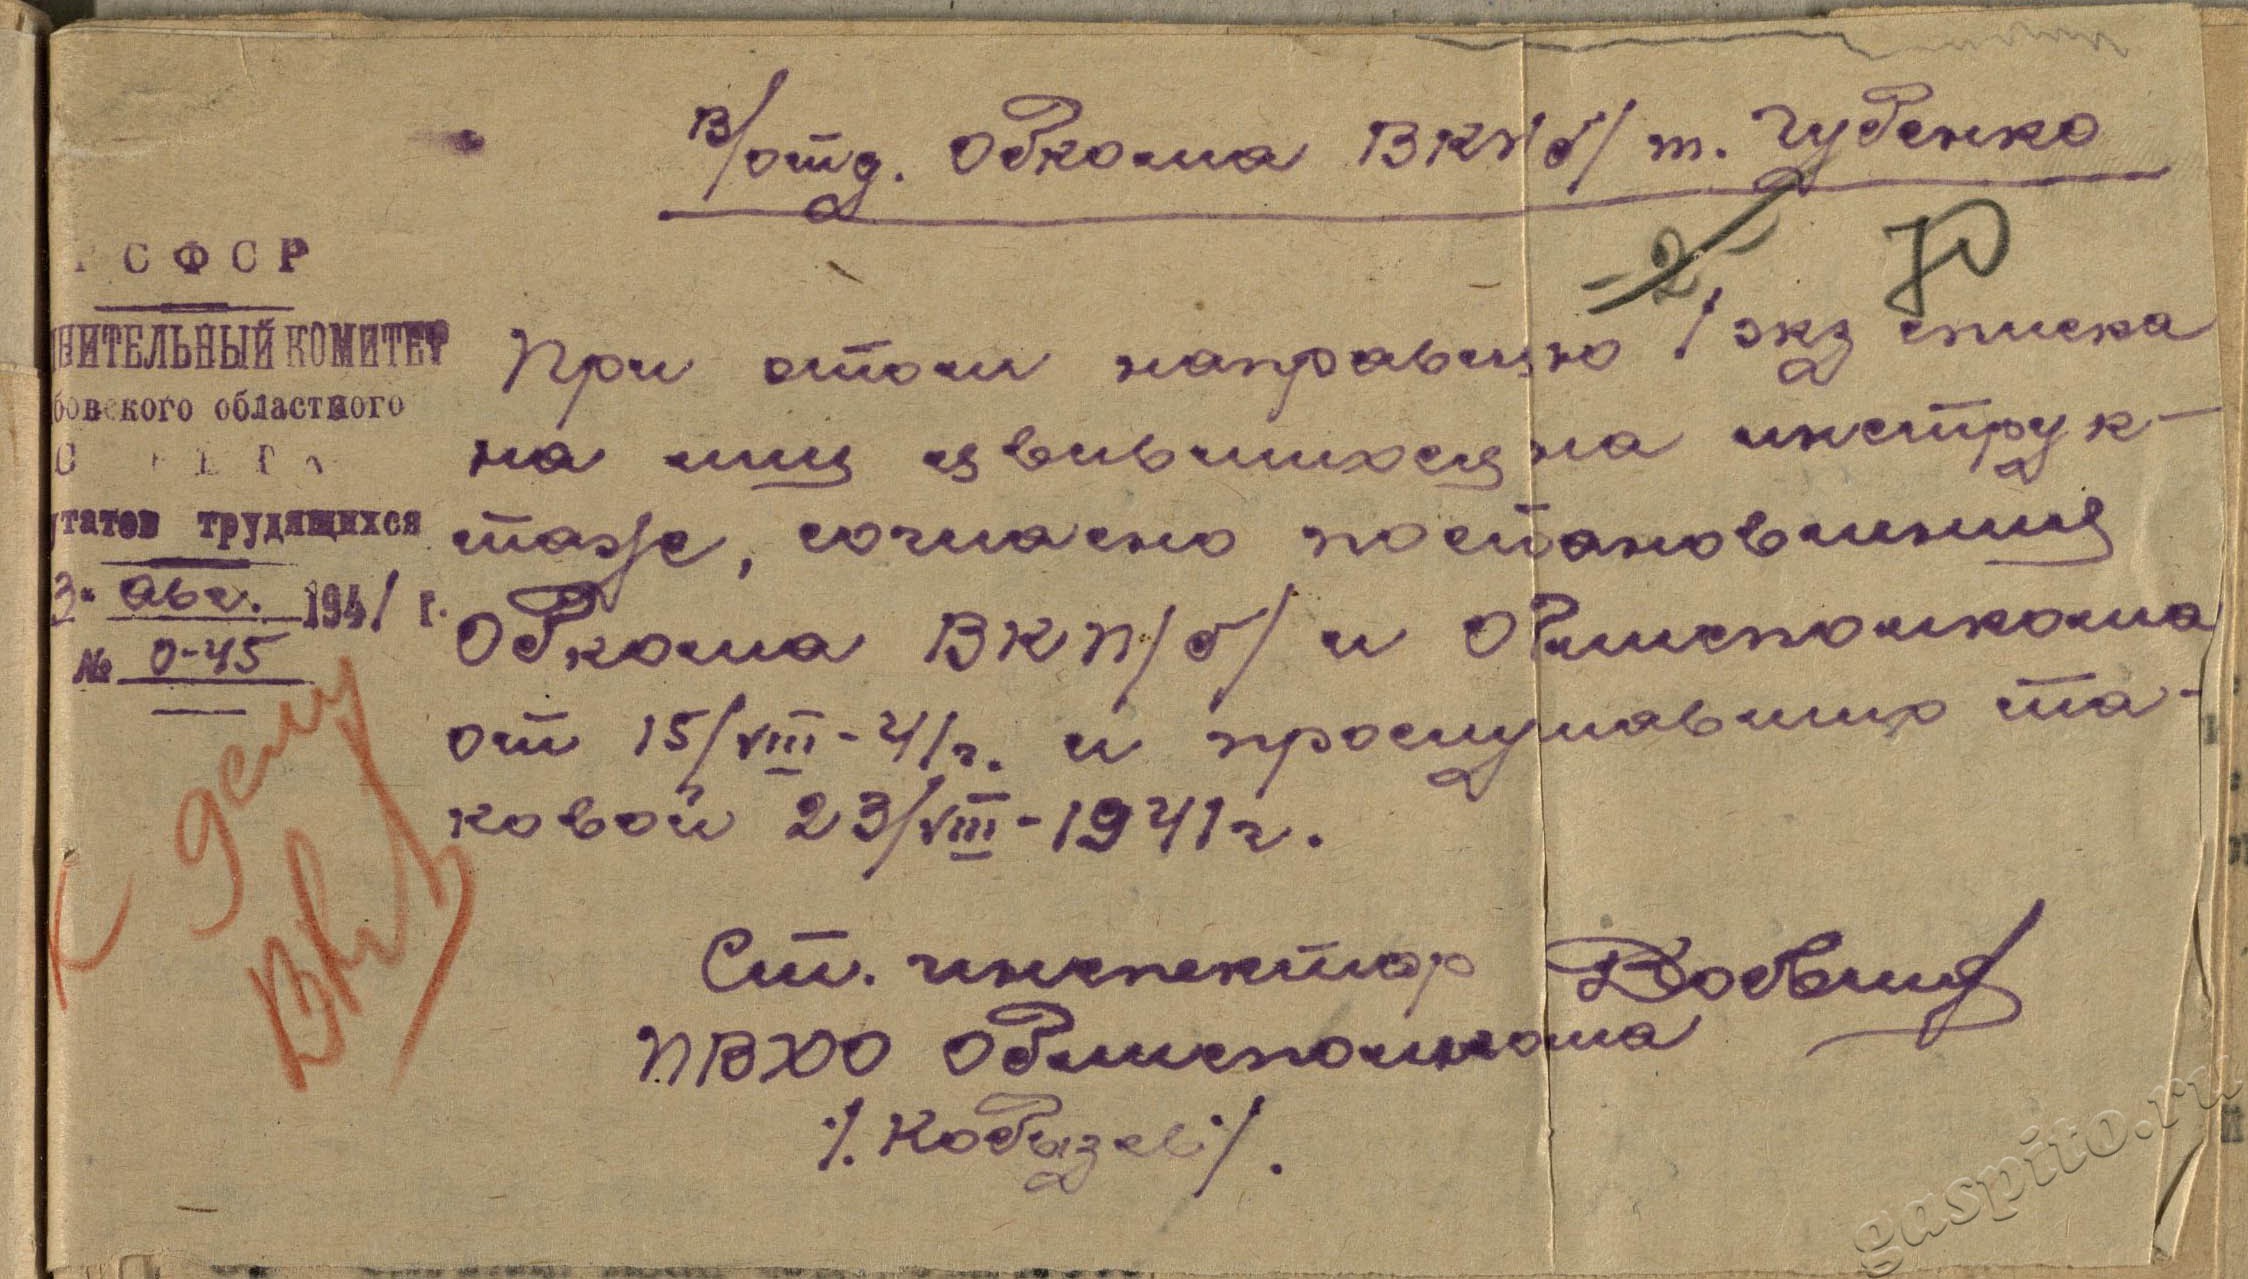 в/отд. Обкома ВКП/б/ т. Чубенко
-2-
РСФСР
НИТЕЛЬНЫЙ КОМИТЕТ
бовского областного
утатов трудящихся
3" авг. 1941 г.
№ 0-45
При этом направляю 1 экз списка
на лиц явившихся на инструк-
таже, согласно постановления
Обкома ВКП/б/ и Облисполкома
от 15/VIII-41г. и прослушавших та-
ковой 23/VIII-1941г.
к делу
Ст. инспектор
ПВХО Облисполкома
/.Кобызев/.
gaspito.ru